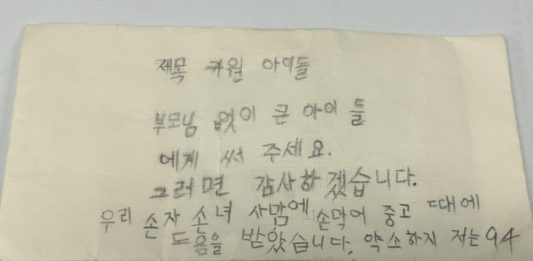 제목 키원 아이들
부모님 없이 큰 아이들
에게 써 주세요.
그러면 감사하겠습니다.
우리 손자 손녀 사맘에 손막어 중고 때에
도음을 받았습니다. 약소하지 저는 94